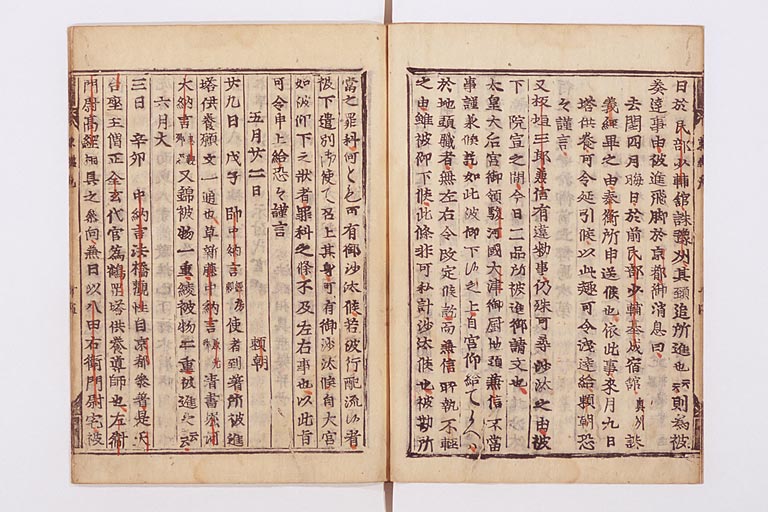 日於民部少輔館誅豫州其頸追所進也云云則為被
奏達事由被進飛脚於京都御消息曰
去閏四月晦日於前民部少輔基成宿館 奥州 誅
義經畢之由泰衡所申送候也依此事來月九日
塔供養可令延引候以此趣可令洩達給頼朝恐
々謹言
又板垣三郎兼信有違勅事仍殊可尋沙汰之由被
下 院宣之間今日二品所被進御請文也
太皇大后宮御領駿河國大津御厨地頭兼信不當
事謹承候訖如此被仰下以之上自宮仰給て候へハ
於地頭職者無左右令改定候歟而兼信所執不輕
之由雖被仰下候此條非可私計沙汰候也被勘所
當之罪科何とも可有御沙汰候若彼行配流以者
被下遣別御使て召上其身可有御沙汰候自大宮
如彼仰下之狀者罪科之條不及左右事也以此旨
可令申上給恐々謹言
五月廿二日 頼朝
廿九日 戊子 帥中納言 經房 使者到著所被進
塔供養願文一通也草新藤中納言 兼光 清書
大納言 又錦被物一重綾被物二重被進之云云
六月大
三日 辛卯 中納言法橋觀性自京都參著是天
台座主僧正全玄代官為鶴岡塔供養導師也左衛
門尉高經相具之參向兼日以八田右衛門尉宅被